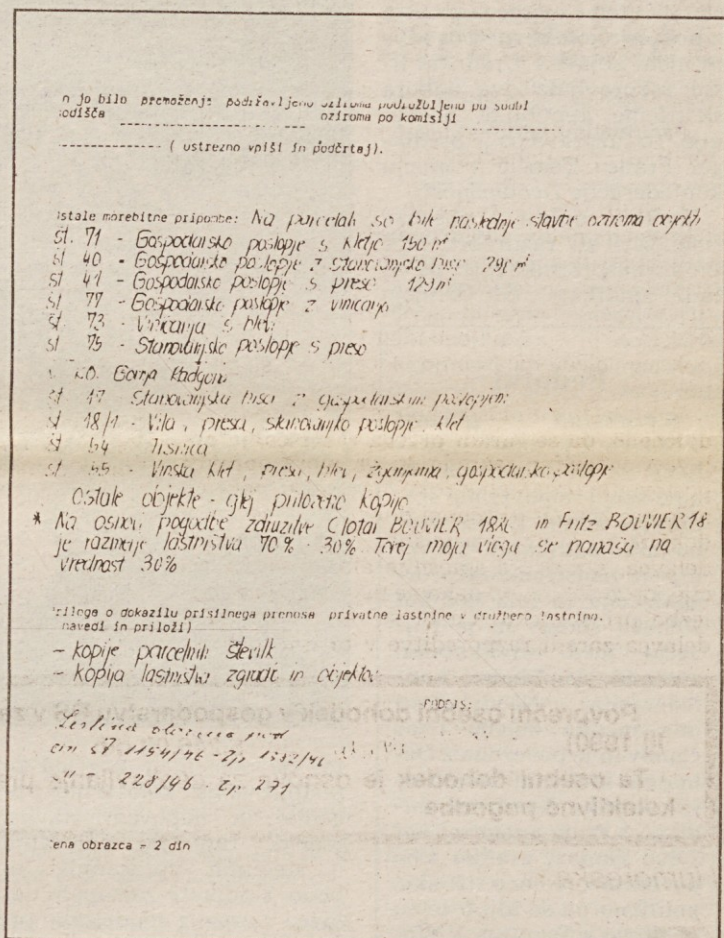 n jo bilo premoženje podržavljeno oziroma podružbljeno po sodbi
sodišča oziroma po komisiji
( ustrezno vpiši in podčrtaj).
stale morebitne pripombe: Na parcelah so bile naslednje stavbe oziroma objekti
št. 71 - Gospodarsko poslopje s kletjo 150 m²
št 40 - Gospodarsko poslopje z stanovanjsko hišo 290 m²
št 41 - Gospodarsko poslopje s prešo 129 m²
št 77 - Gospodarsko poslopje z viničarijo
št 73 - Viničarija s hlevi
št 75 - Stanovanjsko poslopje s prešo
k.o. Gornja Radgona
št 17 Stanovanjska hiša z gospodarskim poslopjem
št 18/1 - Vila, preša, stanovanjsko poslopje, klet
št 54
št 55 - Vinska klet, preša, hlev, žganjarna, gospodarsko poslopje
Ostale objekte - glej priloženo kopijo
* Na osnovi pogodbe združitve Clotar BOUVIER in Fritz BOUVIER 18
je razmerje lastništva 70% - 30%. Torej moja vloga se nanaša na
vrednost 30%
riloga o dokazilu prisilnega prenosa privatne lastnine v družbeno lastnino.
navedi in priloži)
- kopije parcelnih številk
- kopija lastništva zgradb in objektov
PODPIS:
pod
št 1154/46 - Zp 1332/46
-"- 228/46 - Zp 271
ena obrazca = 2 din